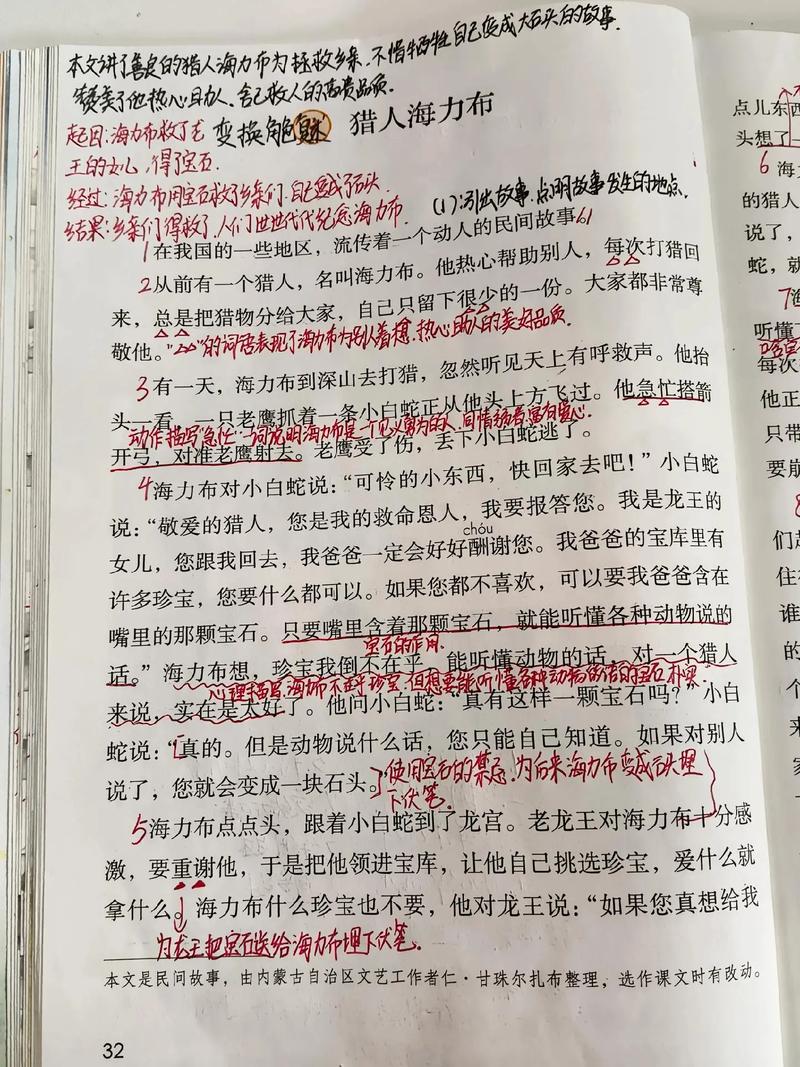 本文讲了善良的猎人海力布为拯救乡亲,不惜牺牲自己变成大石头的故事.
赞美了他热心助人、舍己救人的高贵品质.
猎人海力布
起因:海力布救了龙 变换角色
王的女儿,得了宝石.
经过:海力布用宝石救了乡亲们,自己变成了石头.
(1)引出故事,点明故事发生的地点.
结果:乡亲们得救了,人们世世代代纪念海力布.
1在我国的一些地区,流传着一个动人的民间故事。
2从前有一个猎人,名叫海力布。他热心帮助别人,每次打猎回
来,总是把猎物分给大家,自己只留下很少的一份。大家都非常尊
敬他。
"△△"的词语表现了海力布为别人着想,热心助人的美好品质.
3有一天,海力布到深山去打猎,忽然听见天上有呼救声。他抬
头一看,一只老鹰抓着一条小白蛇正从他头上方飞过。他急忙搭箭
动作描写"急忙"一词说明海力布是一个见义勇为的人,
开弓,对准老鹰射去。老鹰受了伤,丢下小白蛇逃了。
4海力布对小白蛇说:“可怜的小东西,快回家去吧!”小白蛇
说:“敬爱的猎人,您是我的救命恩人,我要报答您。我是龙王的
chóu
女儿,您跟我回去,我爸爸一定会好好酬谢您。我爸爸的宝库里有
许多珍宝,您要什么都可以。如果您都不喜欢,可以要我爸爸含在
嘴里的那颗宝石。只要嘴里含着那颗宝石,就能听懂各种动物说的
宝石的作用.
话。”海力布想,珍宝我倒不在乎,能听懂动物的话,对一个猎人
心理描写,海力布不在乎珍宝,但想要能听懂各种动物的话的宝石
来说,实在是太好了。他问小白蛇:“真有这样一颗宝石吗?”小白
蛇说:“真的。但是动物说什么话,您只能自己知道。如果对别人
说了,您就会变成一块石头。”
使用宝石的禁忌,为后来海力布变成石头埋
下伏笔.
5海力布点点头,跟着小白蛇到了龙宫。老龙王对海力布十分感
激,要重谢他,于是把他领进宝库,让他自己挑选珍宝,爱什么就
拿什么。海力布什么珍宝也不要,他对龙王说:“如果您真想给我
为龙王把宝石送给海力布埋下伏笔.
本文是民间故事,由内蒙古自治区文艺工作者仁·甘珠尔扎布整理,选作课文时有改动。
32
点儿东
头想了
6海
的猎人
说了,
蛇,就
7海
听懂
每次
他正
只带
要崩
8
们
住
谁
的